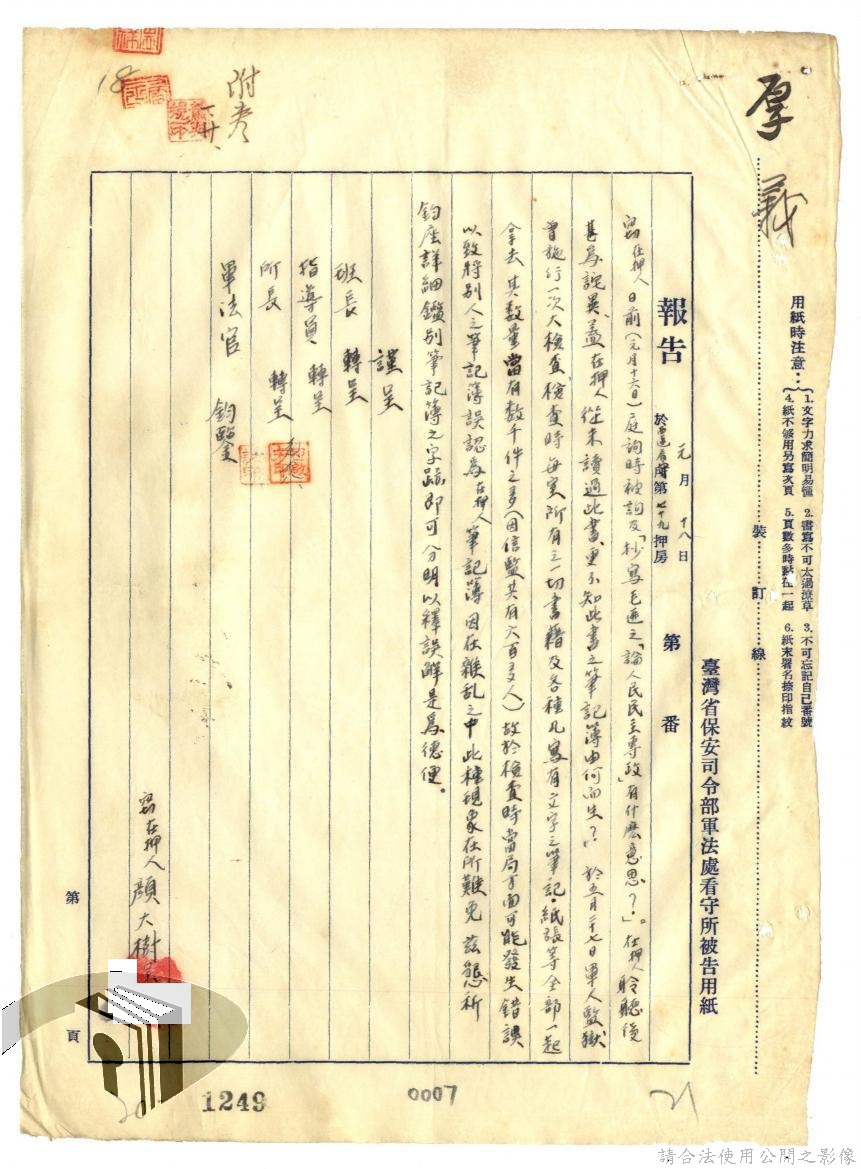 厚義
用紙時注意：
1.文字力求簡明易懂 2.書寫不可太過潦草 3.不可忘記自己番號
4.紙不够用另寫次頁 5.頁數多時點在一起 6.紙末署名捺印指紋
裝 訂 線
臺灣省保安司令部軍法處看守所被告用紙
報告 元月十八日 第 番
第七十九押房
竊在押人日前(元月十六日)庭詢時被詢及「抄寫毛匪之「論人民民主專政」有什麼意思？」。在押人聆聽後
甚為詫異、蓋在押人從未讀過此書、更不知此書之筆記簿由何而生？、於五月二十七日軍人監獄
曾施行一次大檢查、檢查時每室所有之一切書籍及各種凡寫有文字之筆記·紙張等全部一起
拿去 其数量當有数千件之多(因信監共有六百多人) 故於檢查時當局方面可能發生錯誤
以致將別人之筆記簿誤認為在押人筆記簿 因在雜乱之中此種現象在所難免 茲懇祈
鈞座詳細鑑別筆記簿之字跡即可分明以釋誤解是為德便。
謹呈
班長 轉呈
指導員 轉呈
所長 轉呈
軍法官 鈞鑒
竊在押人 顏大樹呈
第 頁
附卷
18
1249
0007
21
請合法使用公開之影像